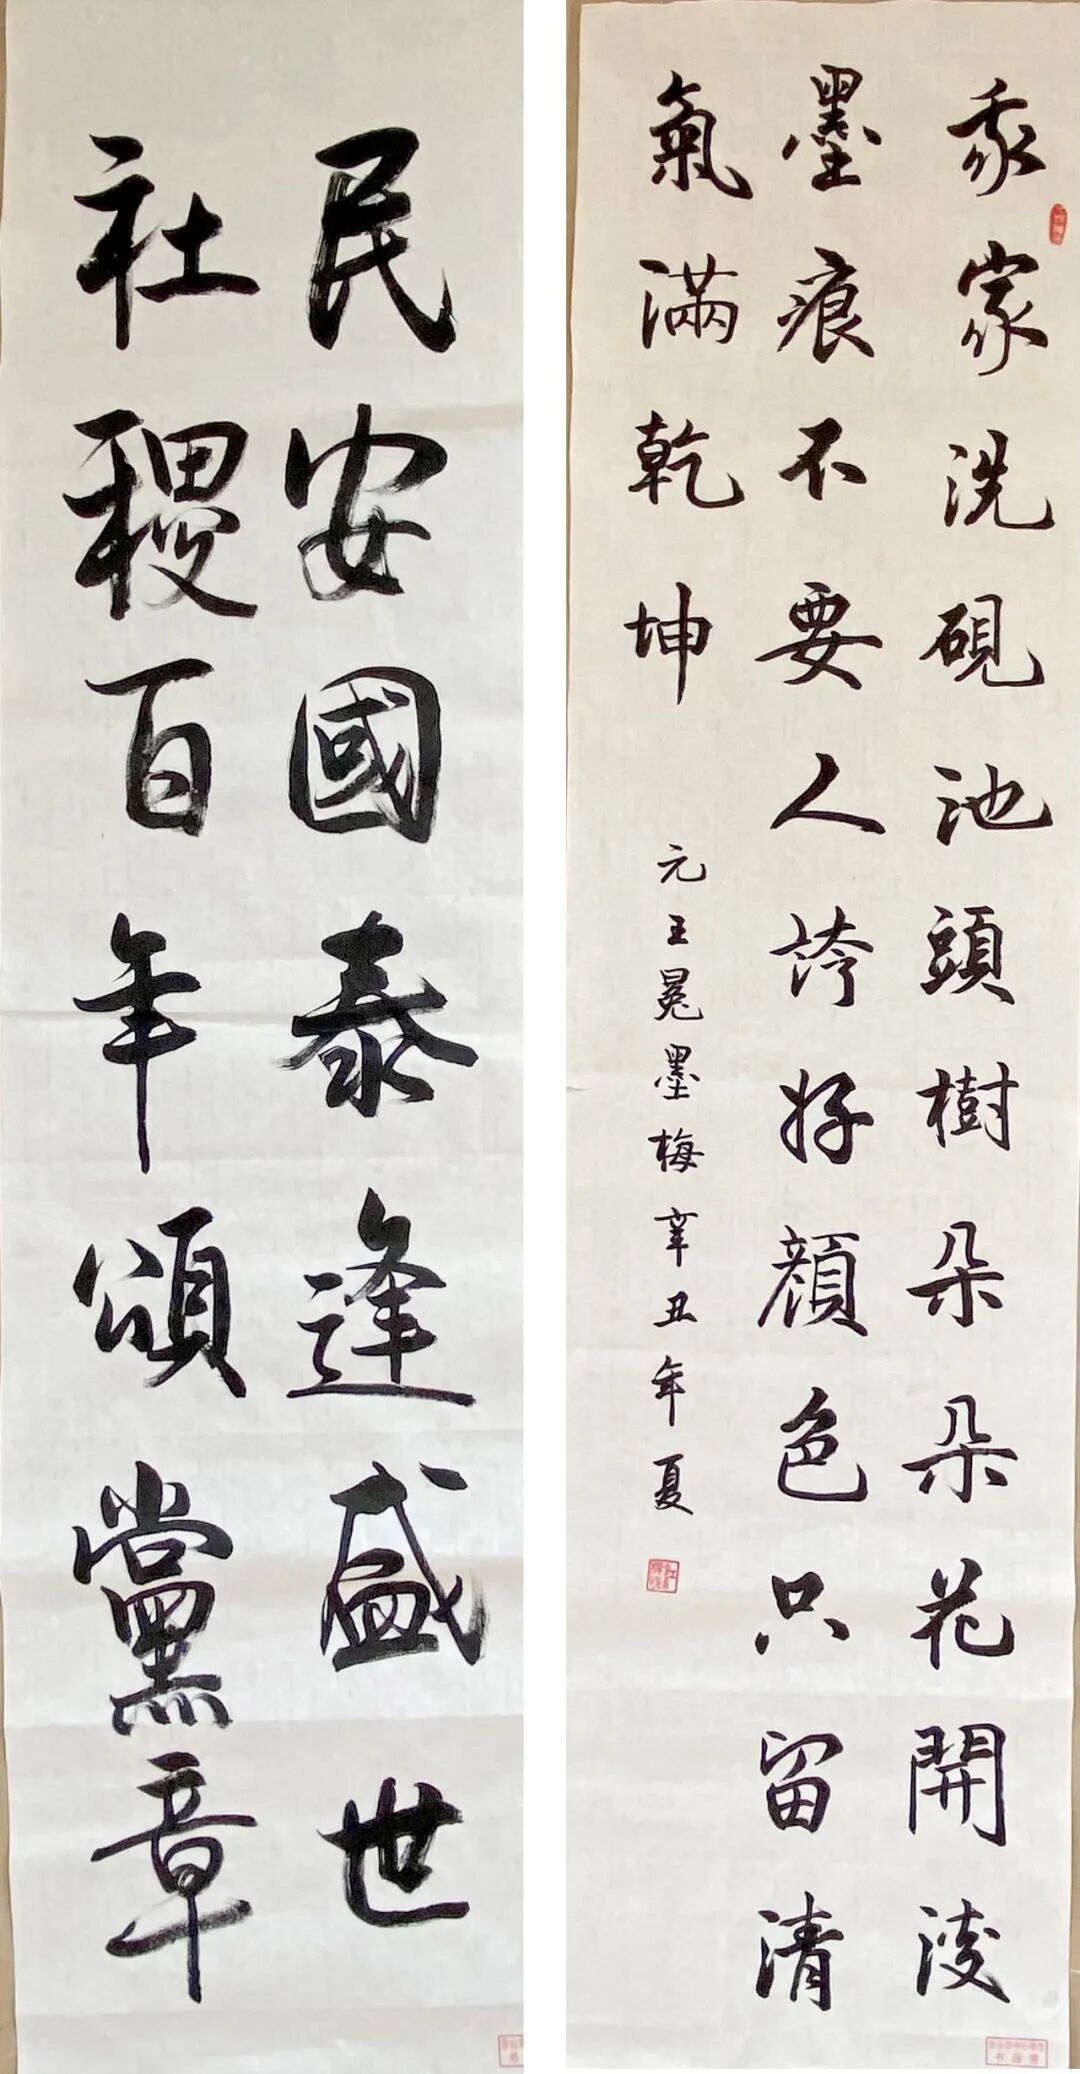 我家洗硯池頭樹朵朵花開淡
墨痕不要人誇好顏色只留清
氣滿乾坤
元王冕墨梅辛丑年夏
民安國泰逢盛世
社稷百年頌黨章